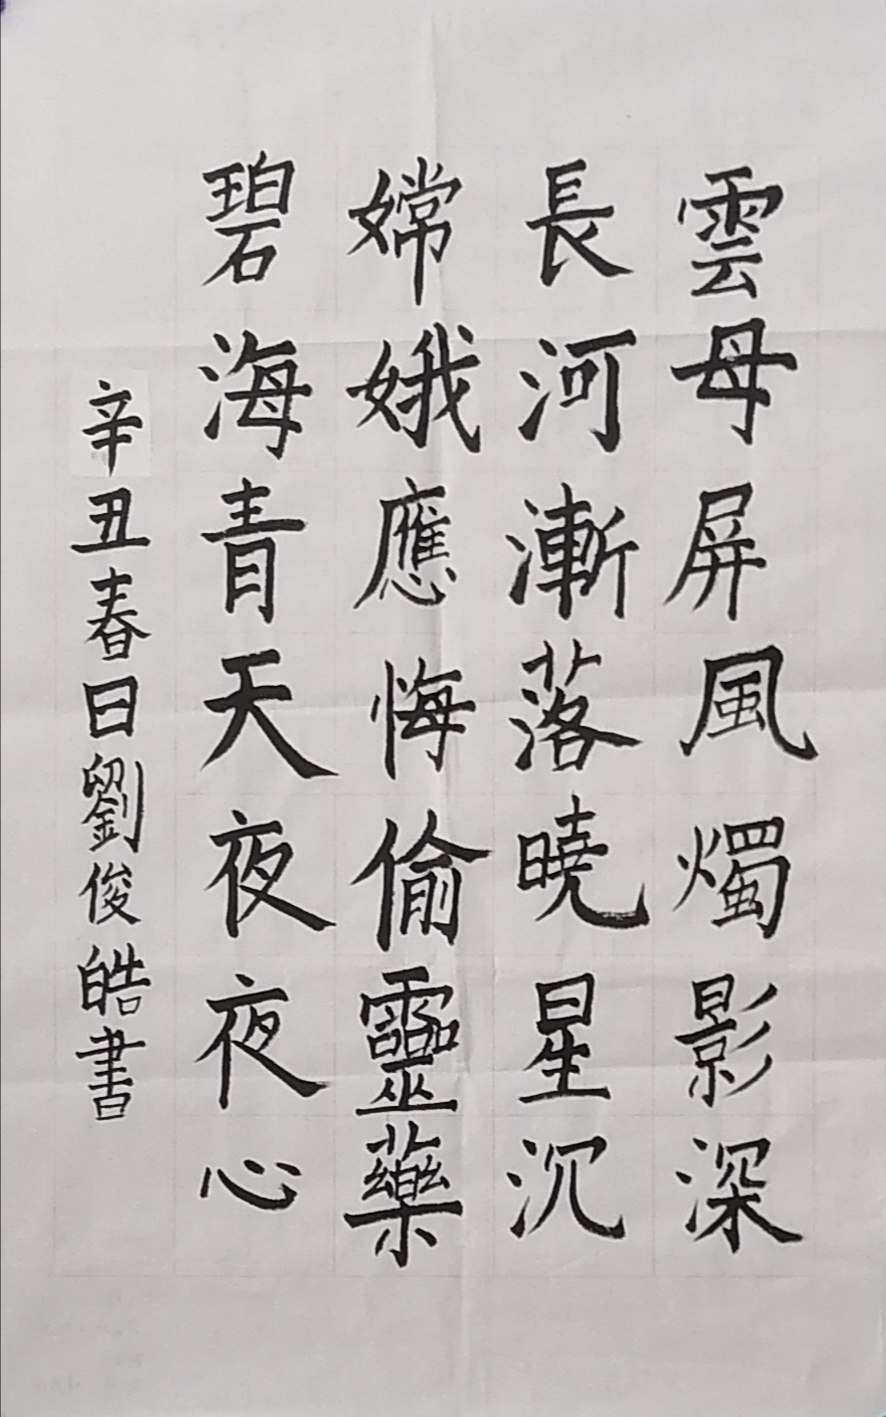 雲母屏風燭影深
長河漸落曉星沉
嫦娥應悔偷靈藥
碧海青天夜夜心
辛丑春日劉俊皓書